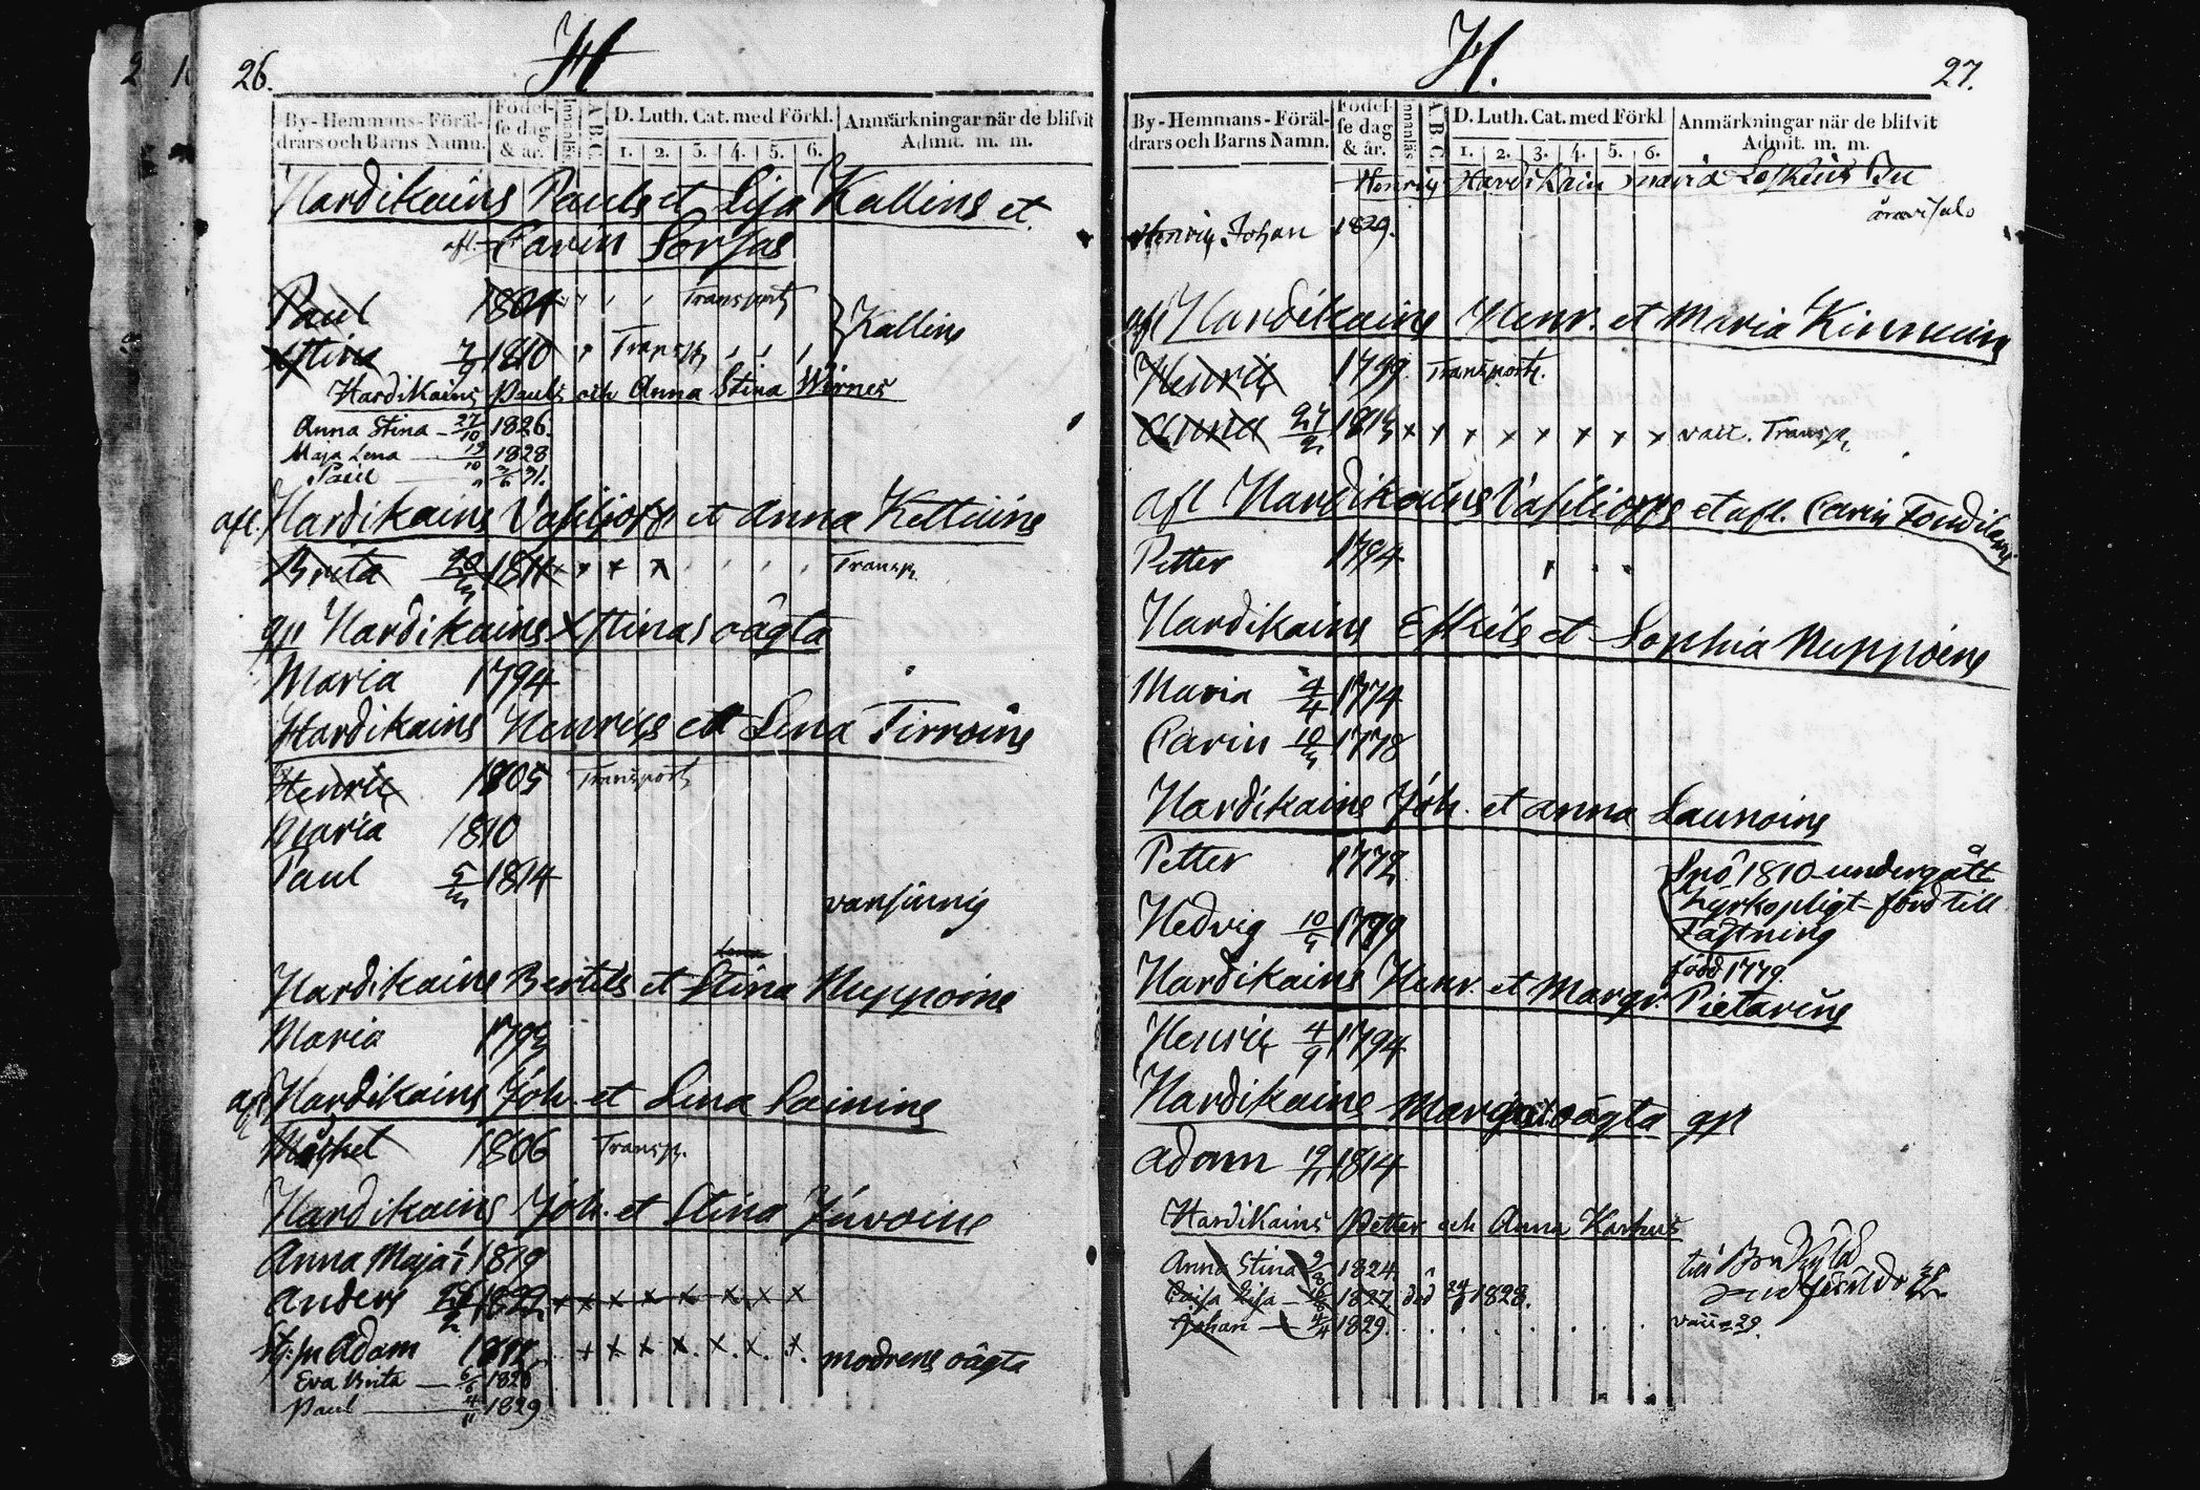 26.
H
By-Hemmans-Föräl-
drars och Barns Namn.
Födel-
se dag
& år.
Innanläs
A B C.
D. Luth. Cat. med Förkl.
1. 2. 3. 4. 5. 6.
Anmärkningar när de blifvit
Admit. m. m.
Hardikains Pauls et Lisa Kallins et
afl. Carin Sorsas
Paul 1804 Transport
Kallins
Stina 1810 Transp.
Hardikains Pauls och Anna Stina Wirnes
Anna Stina 27/10 1826.
Maja Lena 19/10 1828
Paul 31.
afl. Hardikains Vasiljoffs et Anna Kettuins
Brita 1811 Transp.
qp Hardikains Xstinas oägta
Maria 1794
Hardikains Henrics et Lena Tirroins
Henric 1805 Transport
Maria 1810
Paul 1814
vansinnig
Hardikains Bertils et Stina Nuppoins
Maria
afl Hardikains Joh. et Lena Lainins
Michel 1806 Transp.
Hardikains Joh. et Stina
Anna Maja 1819
Anders 1822 x x x x x x x x
Adam x x x x x x x modrens oägta
Eva Brita 6/6
Paul 4/11 1829
H.
27.
By-Hemmans-Föräl-
drars och Barns Namn.
Födel-
se dag
& år.
Innanläs
A B C.
D. Luth. Cat. med Förkl
1. 2. 3. 4. 5. 6.
Anmärkningar när de blifvit
Admit. m. m.
Henric Hardikain Maria
Henric Johan 1829.
afl Hardikains Henr. et Maria Kinnuins
Henric 1799 Transport.
Anna x x x x x x x x Transp.
afl Hardikains Vasilioffs et afl. Carin
Petter 1794
Hardikains Eskils et Sophia Nuppoins
Maria 4/4 1774
Carin 1778
Hardikains Joh. et Anna Launoins
Petter 1772
1810 undergått
kyrkopligt förd till
Fästning
Hedvig 1799
född 1779
Hardikains Henr. et Margr. Pietarins
Henric 4/9 1794
Hardikains oägta qp
Adam 1814
Hardikains Petter och Anna Karhus
Anna Stina 1824.
Caisa Lisa 1827. död 1828.
Johan 4/4 1829.